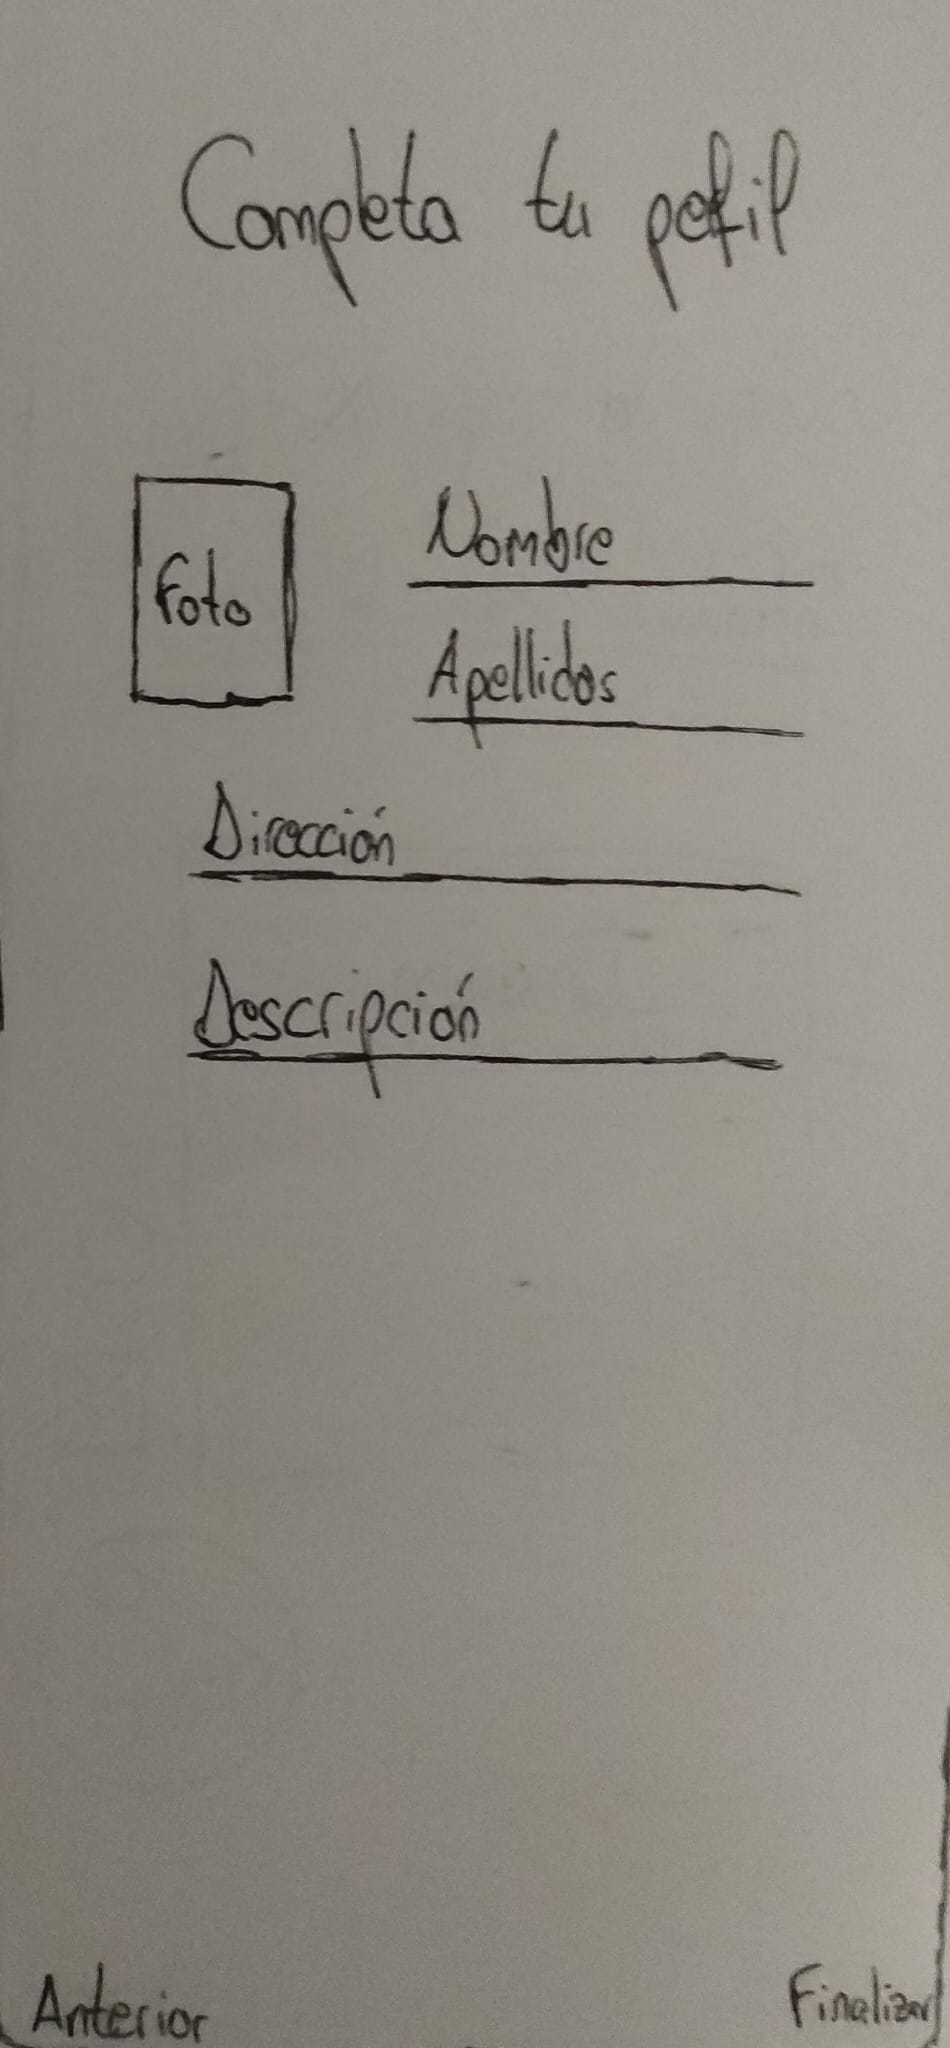 Completa tu pefil
Foto
Nombre
Apellidos
Dirección
Descripción
Anterior
Finalizar